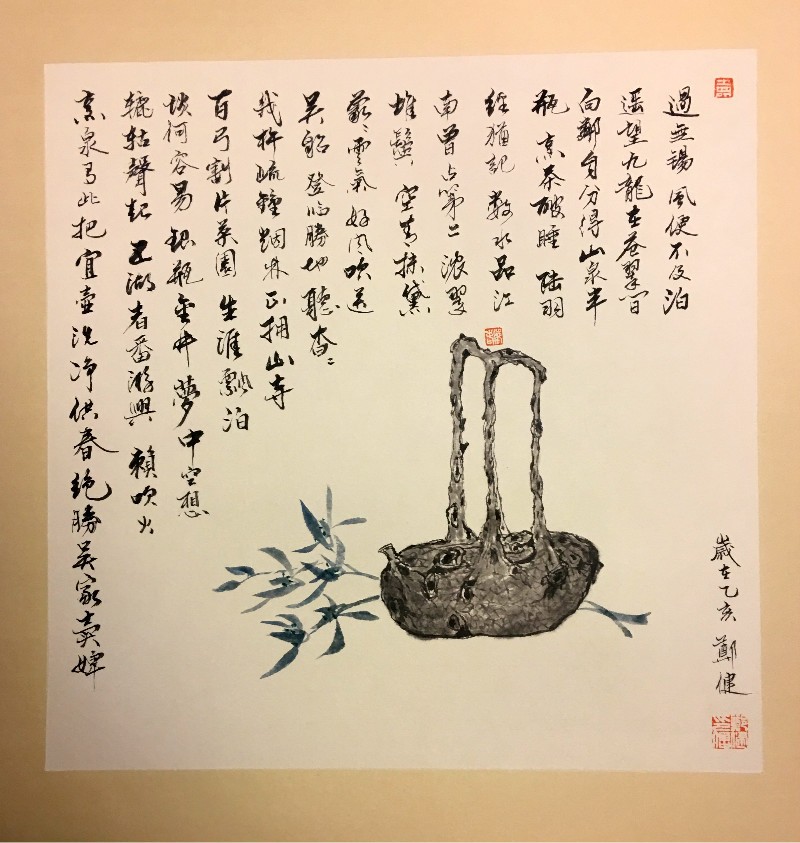 過無錫風便不及泊
遥望九龍在蒼翠間
向鄰舟分得山泉半
瓶烹茶破睡 陸羽
經猶記 数水品江
南曾占第二 濃翠
堆鬟 空青抹黛
雲氣 好風吹送
吴船 登臨勝地 聽沓〻
幾杵疏鐘烟林 正拥山寺
百弓割片菜園 生涯飄泊
谈何容易 銀瓶金井夢中空想
辘轳聲起 五湖者番游興 賴吹火
烹泉為此 把宜壺洗净供春绝勝吴家賣婢
歲在乙亥 鄭健